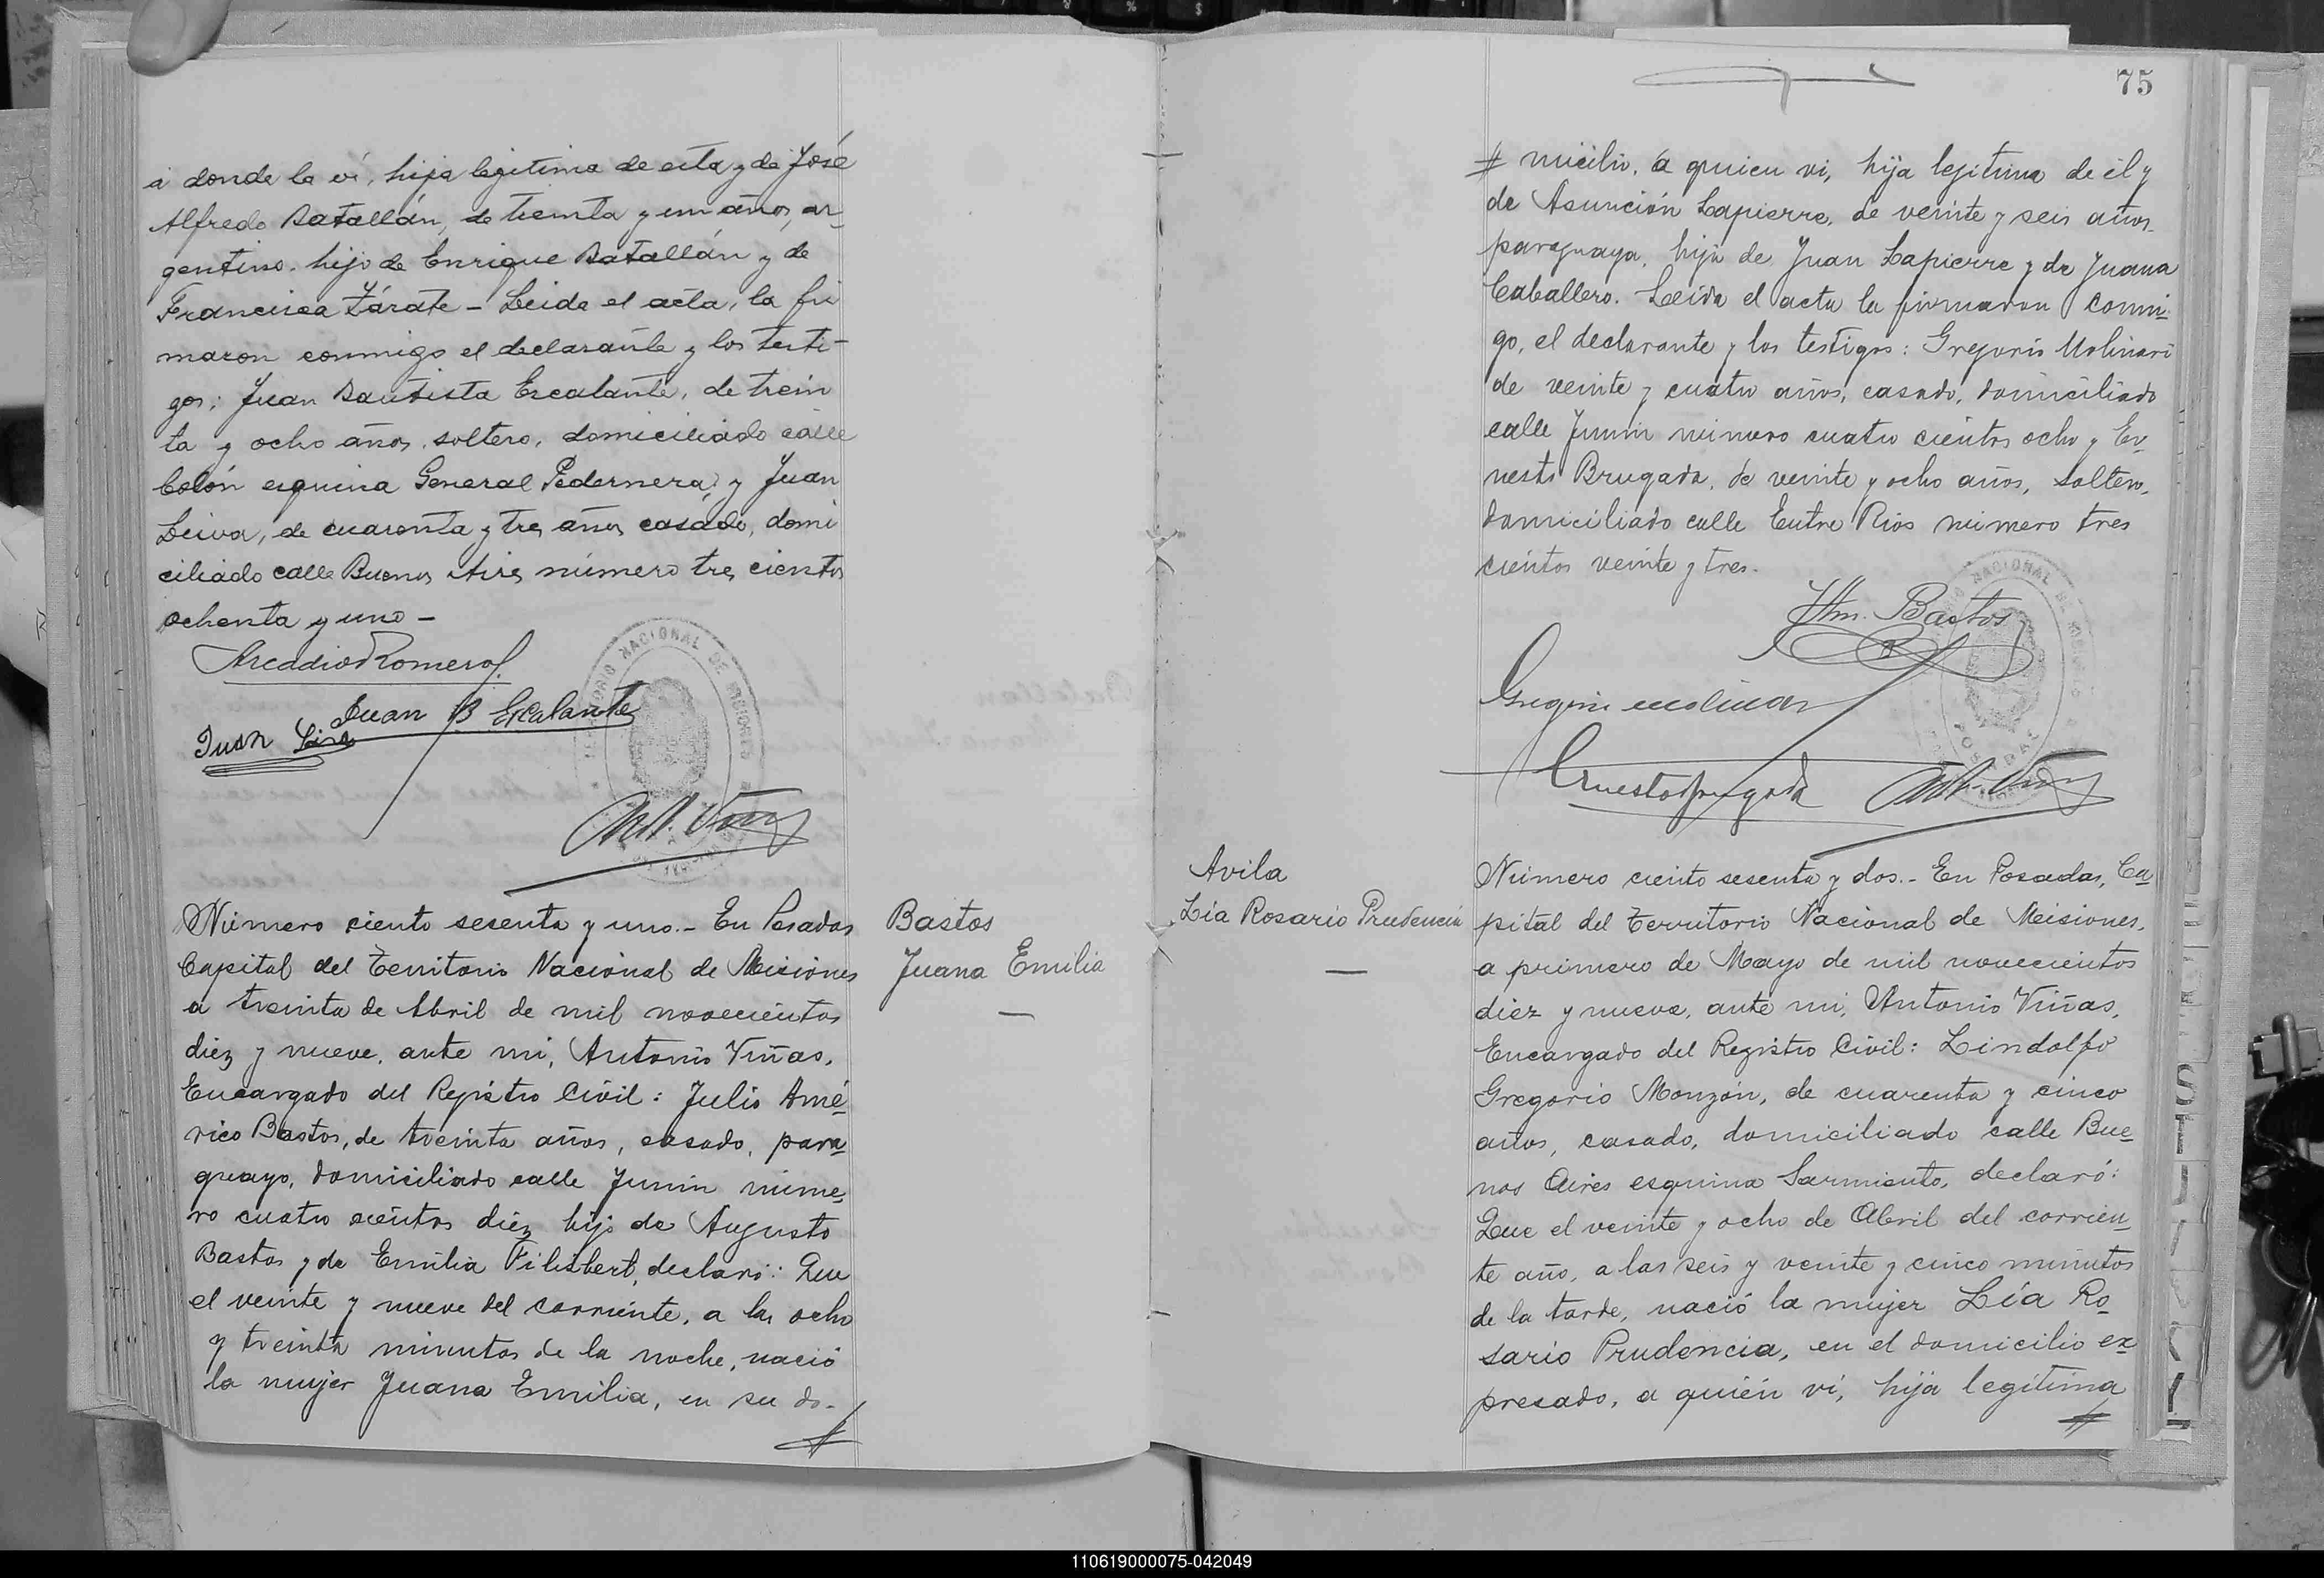 á donde la ví, hija legitima de esta y de José
Alfredo Batallán, de treinta y un años, ar-
gentino. hijo de Enrique Batallán y de
Francisca Zárate - Leida el acta, la fir
maron conmigo el declarante y los testi-
gos: Juan Bautista Escalante, de trein
ta y ocho años, soltero, domiciliado calle
Colón esquina General Pedernera, y Juan
Leiva, de cuarenta y tres años casado, domi
ciliado calle Buenos Aires número tres cientos
ochenta y uno -
Arcadio Romero
Juan B Escalante
Juan Leiva
Número ciento sesenta y uno.- En Posadas
Capital del Territorio Nacional de Misiones
a treinta de Abril de mil novecientos
diez y nueve, ante mi, Antonio Viñas,
Encargado del Registro Civil: Julio Amé-
rico Bastos, de treinta años, casado, para-
guayo, domiciliado calle Junin núme-
ro cuatro cientos diez, hijo de Augusto
Bastos y de Emilia Filisbert, declaró: Que
el veinte y nueve del corriente, a las ocho
y treinta minutos de la noche, nació
la mujer Juana Emilia, en su do-
#
Bastos
Juana Emilia
—
75
# micilio, a quien vi, hija legitima de él y
de Asunción Lapierre, de veinte y seis años,
paraguaya, hija de Juan Lapierre y de Juana
Caballero. Leida el acta la firmaron conmi-
go, el declarante y los testigos: Gregorio Molinari
de veinte y cuatro años, casado, domiciliado
calle Junin número cuatro cientos ocho y Er-
nesto Brugada, de veinte y ocho años, soltero,
domiciliado calle Entre Rios número tres
cientos veinte y tres.
Bastos
Gregorio Molinari
Ernesto Brugada
Avila
Lía Rosario Prudencia
—
Número ciento sesenta y dos.- En Posadas, Ca-
pital del Territorio Nacional de Misiones,
a primero de Mayo de mil novecientos
diez y nueve, ante mi, Antonio Viñas,
Encargado del Registro Civil: Lindolfo
Gregorio Monzón, de cuarenta y cinco
años, casado, domiciliado calle Bue-
nos Aires esquina Sarmiento, declaró:
Que el veinte y ocho de Abril del corrien-
te año, a las seis y veinte y cinco minutos
de la tarde, nació la mujer Lía Ro-
sario Prudencia, en el domicilio ex-
presado, a quién ví, hija legítima
#
110619000075-042049